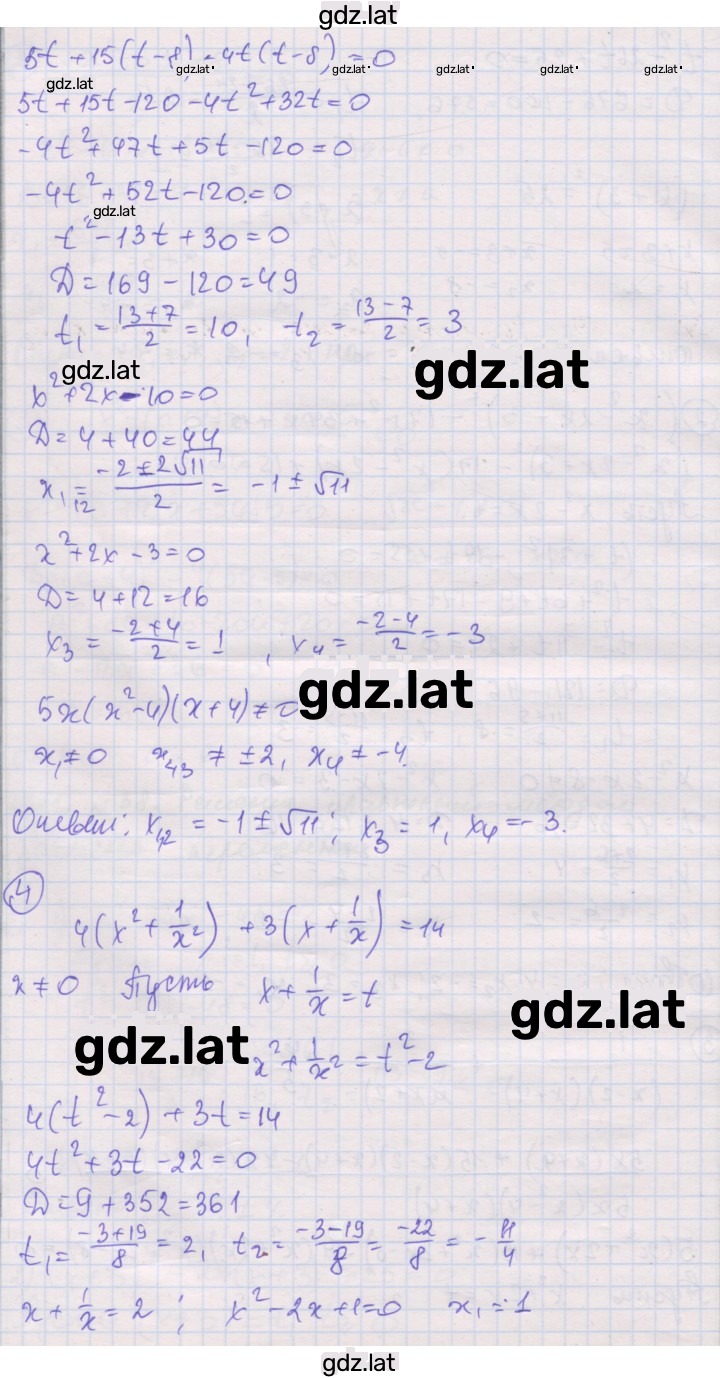 gdz.lat
5t + 15(t-8) - 4t(t-8) = 0
gdz.lat gdz.lat gdz.lat gdz.lat gdz.lat
5t + 15t - 120 - 4t² + 32t = 0
-4t² + 47t + 5t - 120 = 0
-4t² + 52t - 120 = 0
gdz.lat
t² - 13t + 30 = 0
D = 169 - 120 = 49
t₁ = (13+7)/2 = 10, t₂ = (13-7)/2 = 3
gdz.lat gdz.lat
x² + 2x - 10 = 0
D = 4 + 40 = 44
x₁,₂ = (-2 ± 2√11)/2 = -1 ± √11
x² + 2x - 3 = 0
D = 4 + 12 = 16
x₃ = (-2+4)/2 = 1, x₄ = (-2-4)/2 = -3
gdz.lat
5x(x²-4)(x+4) ≠ 0
x₁ ≠ 0 x₂,₃ ≠ ±2, x₄ ≠ -4.
Ответ: x₁,₂ = -1 ± √11; x₃ = 1, x₄ = -3.
4
4(x² + 1/x²) + 3(x + 1/x) = 14
x ≠ 0 Пусть x + 1/x = t
gdz.lat
gdz.lat
x² + 1/x² = t² - 2
4(t² - 2) + 3t = 14
4t² + 3t - 22 = 0
D = 9 + 352 = 361
t₁ = (-3+19)/8 = 2, t₂ = (-3-19)/8 = -22/8 = -11/4
x + 1/x = 2; x² - 2x + 1 = 0 x₁ = 1
gdz.lat